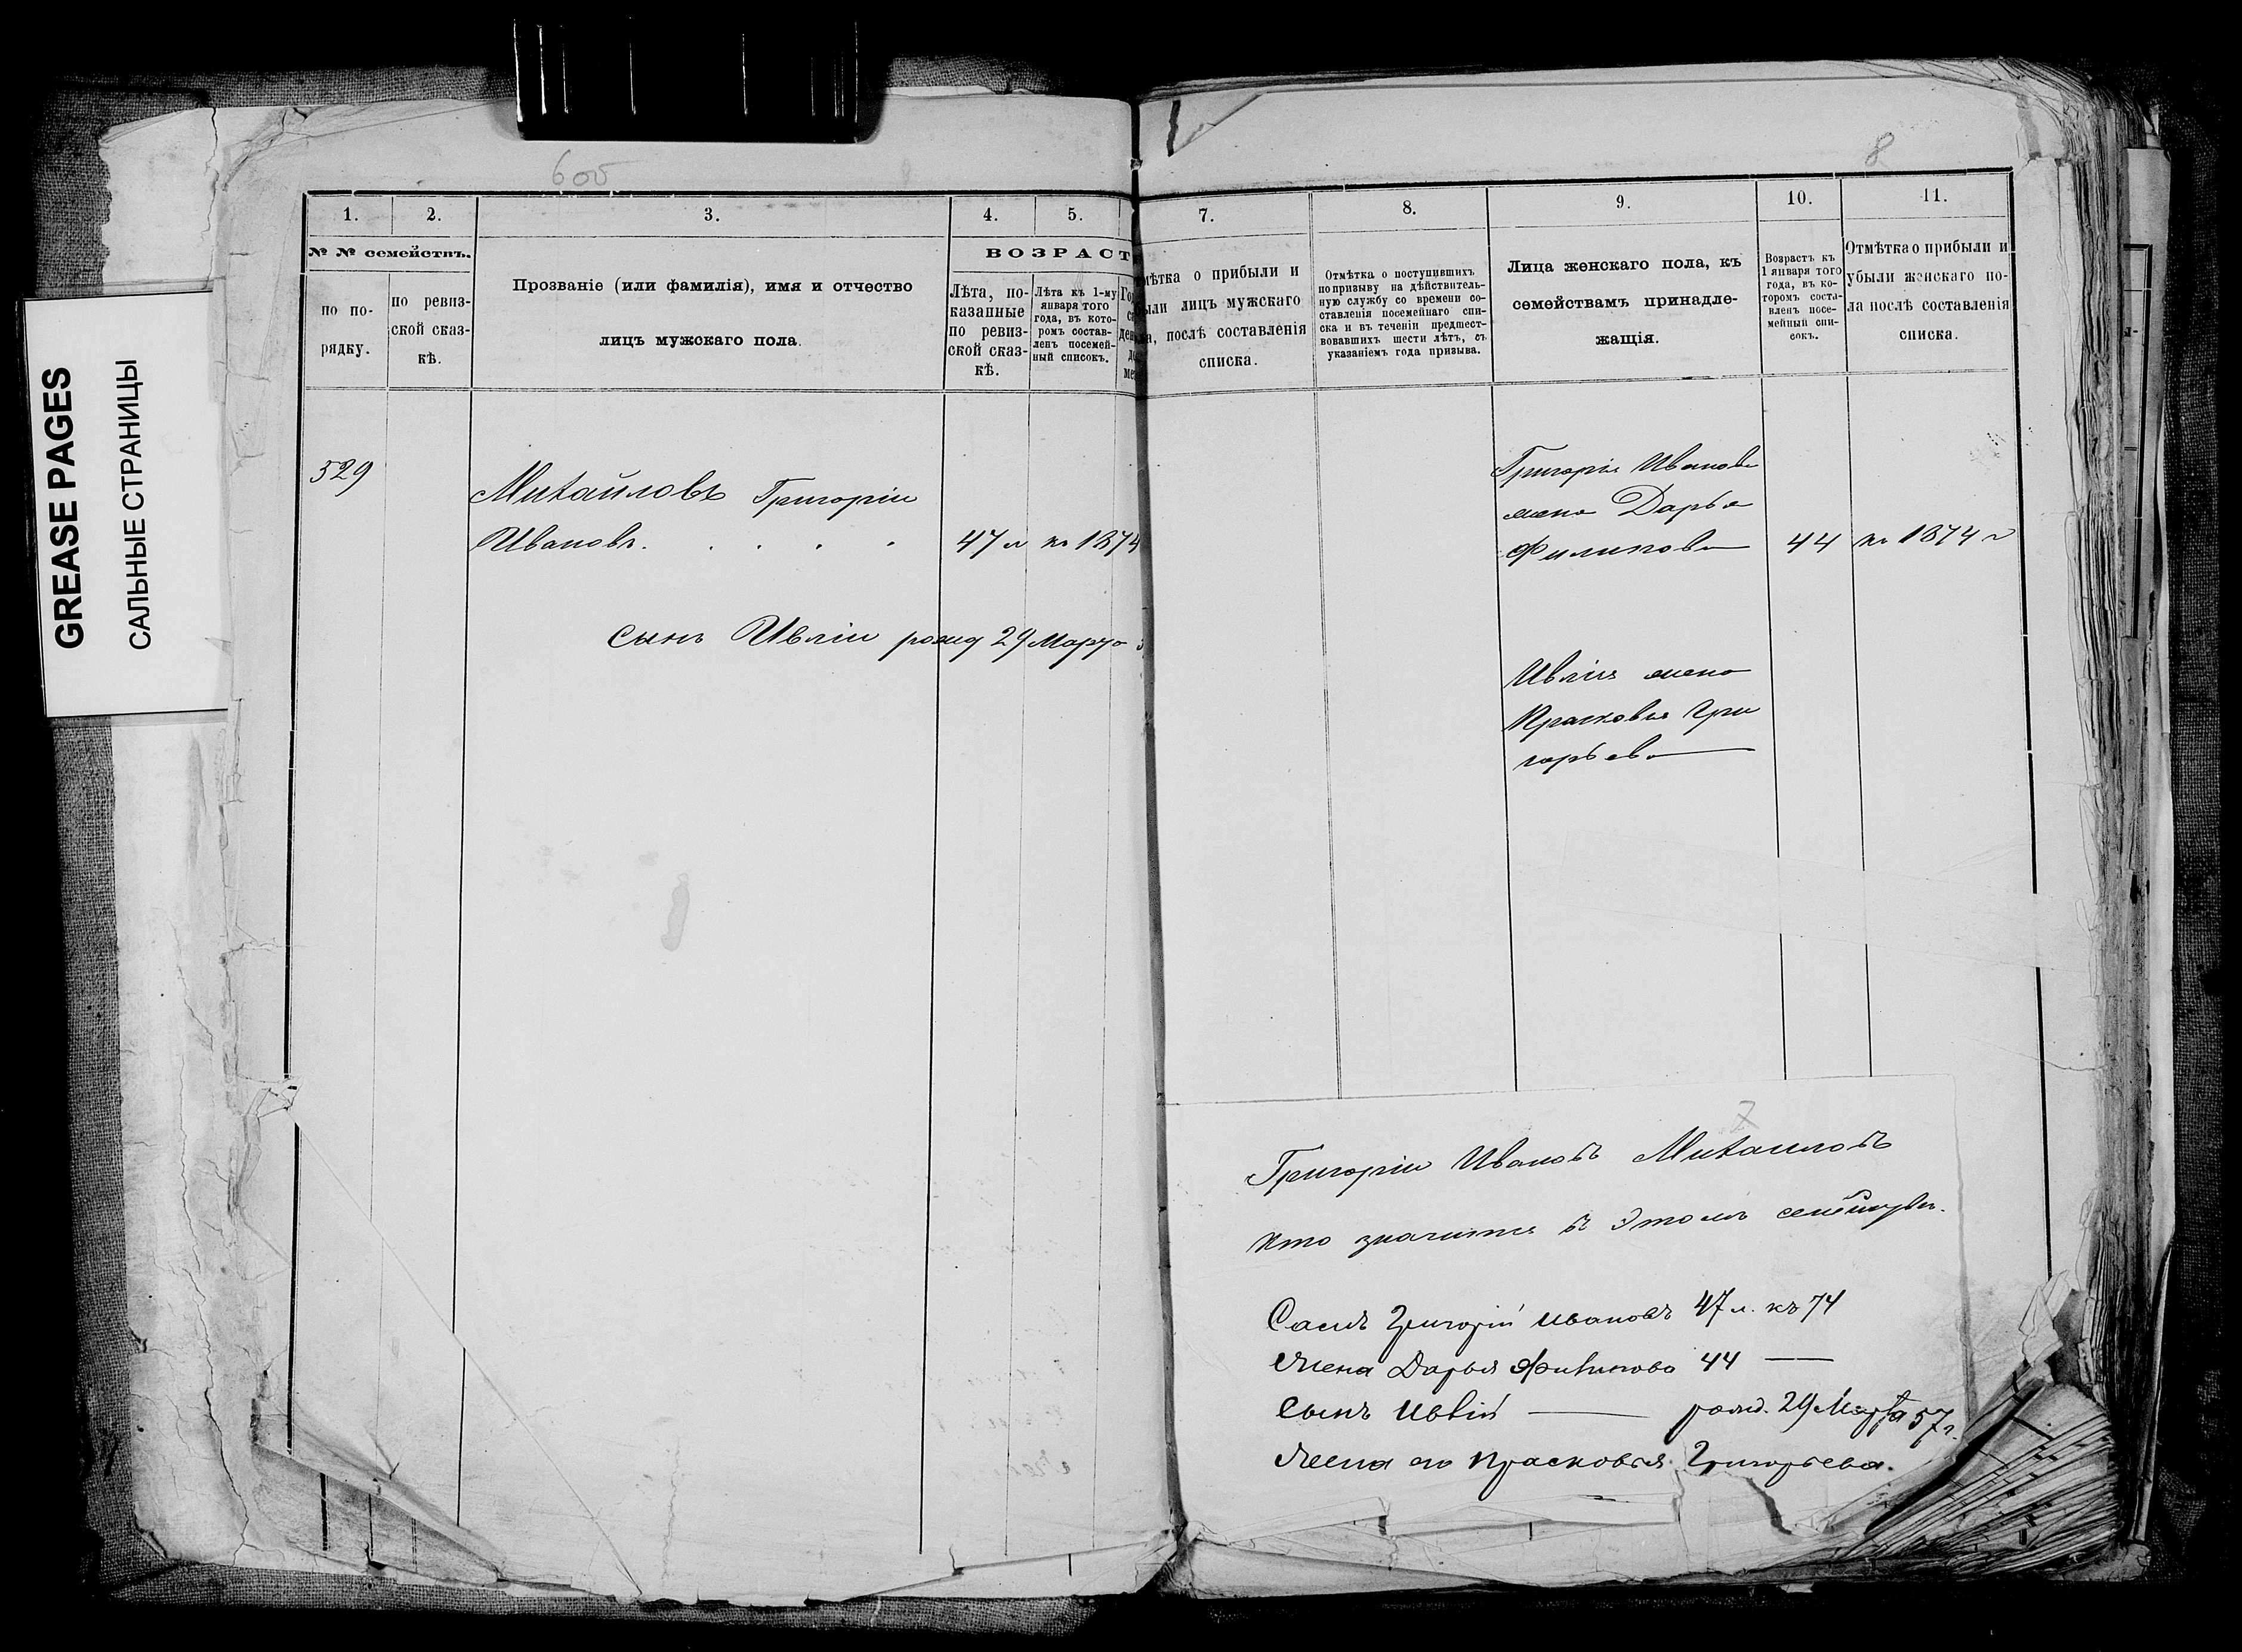 GREASE PAGES
САЛЬНЫЕ СТРАНИЦЫ
605
1.
2.
3.
4.
5.
№ № семействъ.
ВОЗРАСТ
по по-
рядку.
по ревиз-
ской сказ-
кѣ.
Прозваніе (или фамилія), имя и отчество
лицъ мужскаго пола.
Лѣта, по-
казанные
по ревиз-
ской сказ-
кѣ.
Лѣта къ 1-му
января того
года, въ кото-
ромъ состав-
ленъ посемей-
ный списокъ.
529
Михайловъ Григоріи
Ивановъ. . . . . 47 л къ 1874
сынъ Ивліи рожд 29 Марта
8
7.
8.
9.
10.
11.
мѣтка о прибыли и
ыли лицъ мужскаго
ла, послѣ составленія
списка.
Отмѣтка о поступившихъ
по призыву на дѣйствитель-
ную службу со времени со-
ставленія посемейнаго спи-
ска и въ теченіи предшест-
вовавшихъ шести лѣтъ, съ
указаніемъ года призыва.
Лица женскаго пола, къ
семействамъ принадле-
жащія.
Возрастъ къ
1 января того
года, въ ко-
торомъ соста-
вленъ посе-
мейный спи-
сокъ.
Отмѣтка о прибыли и
убыли женскаго по-
ла послѣ составленія
списка.
Григорія Иванова
жена Дарья
Филипова 44 къ 1874 г
Ивлія жена
Прасковья Гри
горьева
7
Григоріи Ивановъ Михаиловъ
кто значится въ этомъ
Самъ Григорій Ивановъ 47 л. къ 74
Жена Дарья Филипова 44 —
Сынъ Ивлій — рожд. 29 Марта 57 г.
Жена его Прасковья Григорьева.